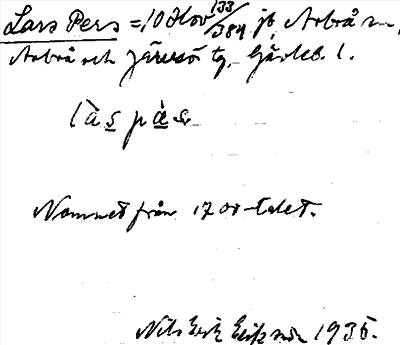 Lars Pers = 10 Hov 133/384 jb, Arbrå sn,
Arbrå och Järvsö tg, Gävleb. l.
làspæ̀s
Namnet från 1700-talet.
Nils Erik Eriksson 1935.